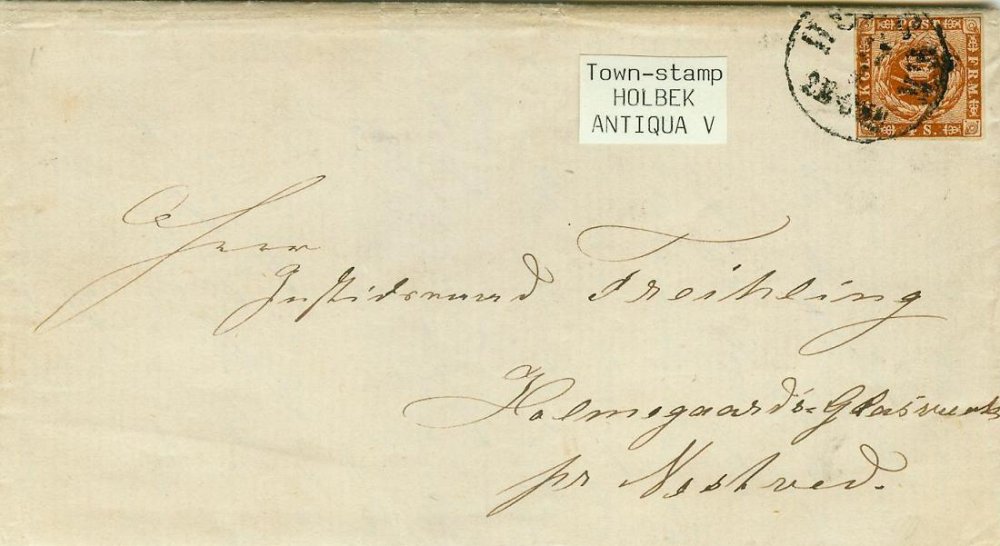 Town-stamp
HOLBEK
ANTIQUA V
KGL POST FRM
4 S.
Herr
Justidsraad Freihling
Holmegaards=Glasværk
pr Nestved.